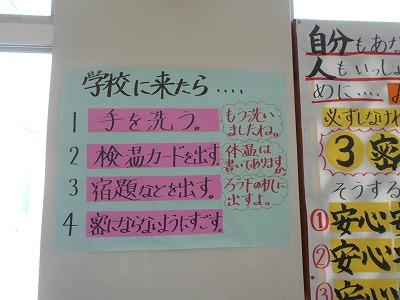 学校に来たら‥‥
1 手を洗う。
もう洗い
ましたね。
2 検温カードを出す。
体温は
書いてありますか。
3 宿題などを出す。
ろう下の机に
出すよ。
4 密にならないようにすごす。
自分もあな
人もいっしょ
めに‥‥
必ずしなけれ
3密
そうする
①安心
②安心
③安心